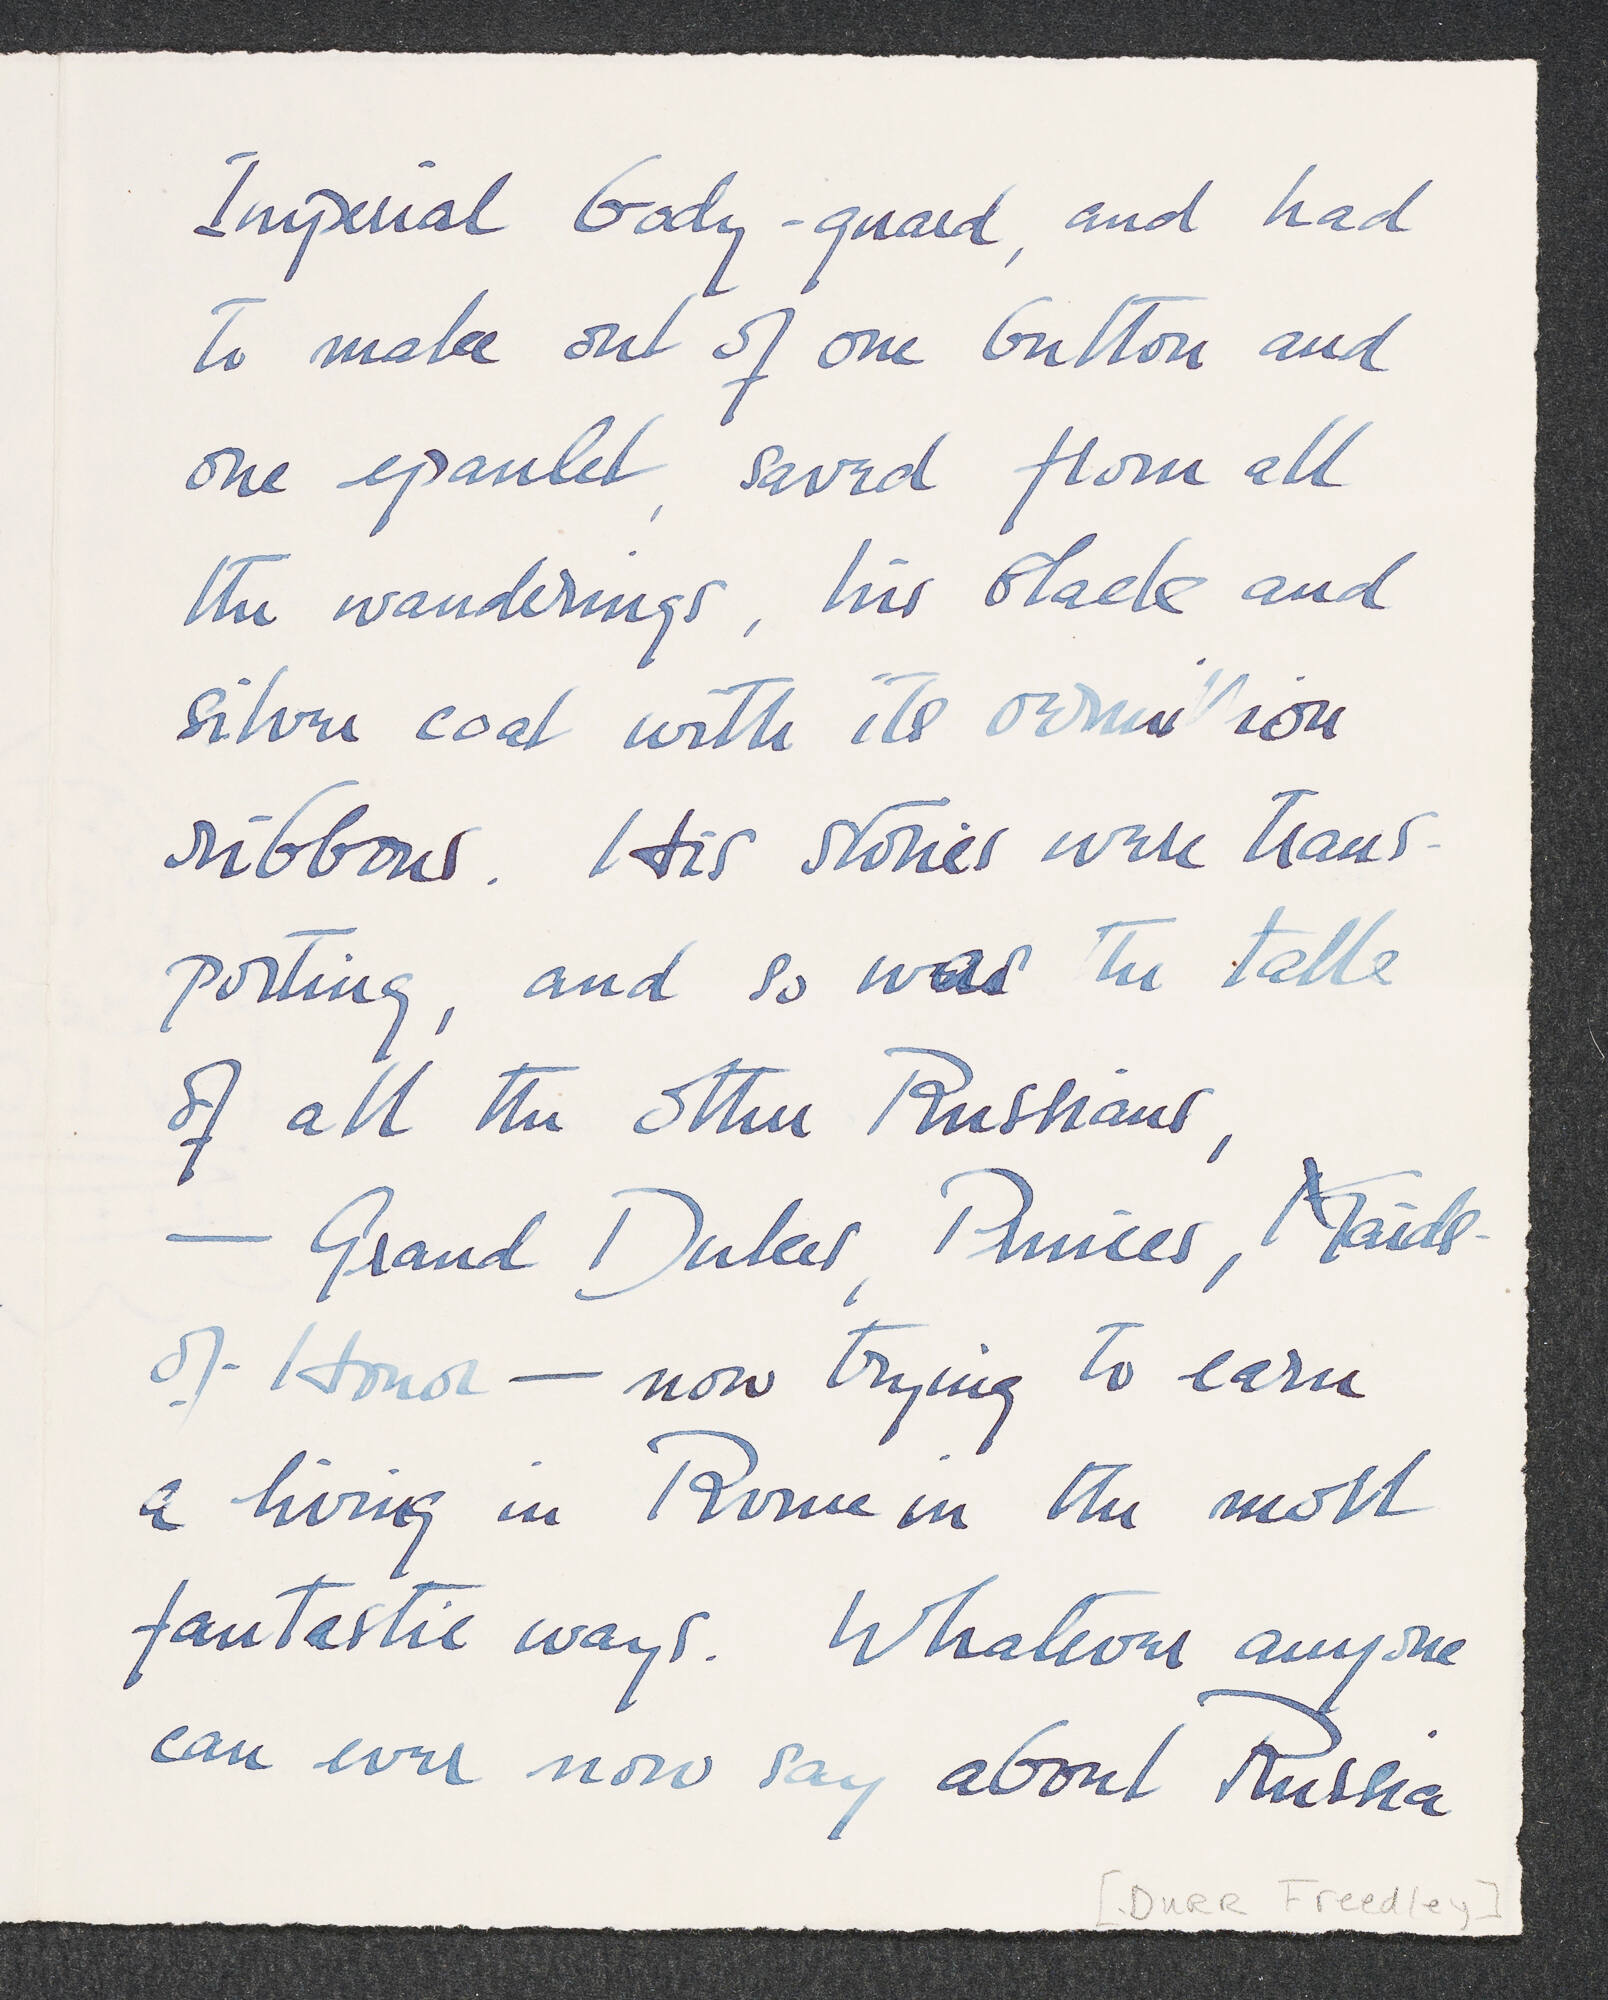 Imperial body-guard, and had
to make out of one button and
one epaulet, saved from all
the wanderings, his black and
silver coat with its vermillion
ribbons. His stories were trans-
porting, and so was the talk
of all the other Russians,
— Grand Dukes, Princes, Maids-
of-Honor — now trying to earn
a living in Rome in the most
fantastic ways. Whatever anyone
can ever now say about Russia
[Durr Freedley]